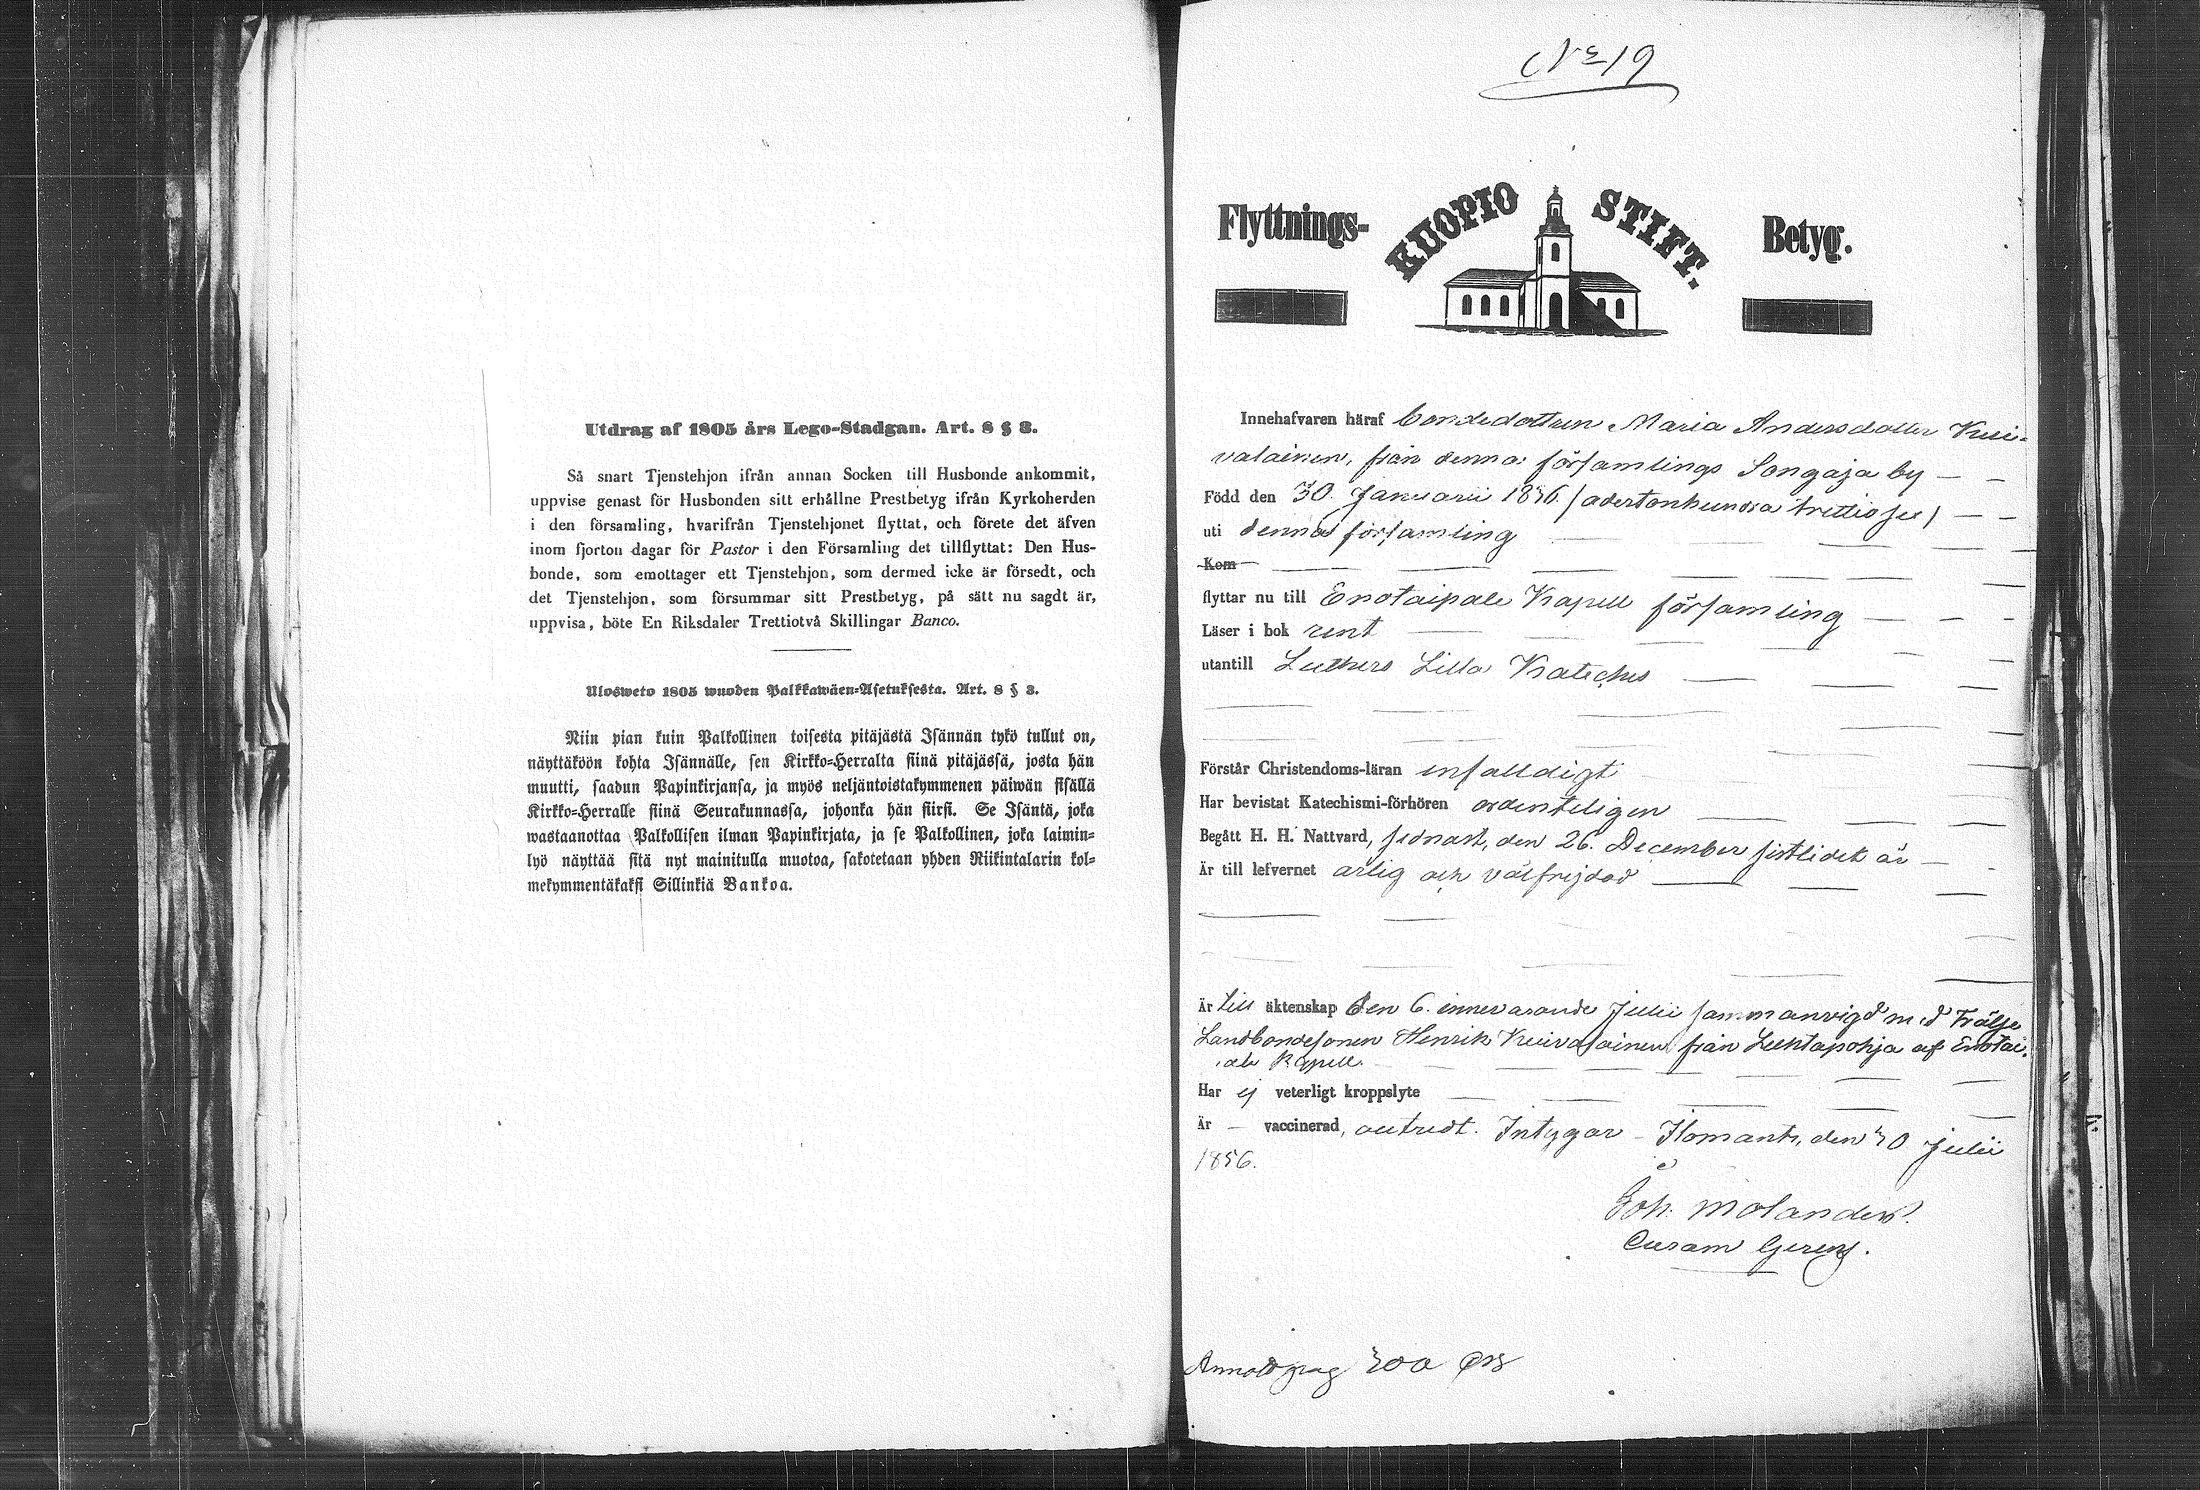 Utdrag af 1805 års Lego-Stadgan. Art. 8 § 3.
Så snart Tjenstehjon ifrån annan Socken till Husbonde ankommit,
uppvise genast för Husbonden sitt erhållne Prestbetyg ifrån Kyrkoherden
i den församling, hvarifrån Tjenstehjonet flyttat, och förete det äfven
inom fjorton dagar för Pastor i den Församling det tillflyttat: Den Hus-
bonde, som emottager ett Tjenstehjon, som dermed icke är försedt, och
det Tjenstehjon, som försummar sitt Prestbetyg, på sätt nu sagdt är,
uppvisa, böte En Riksdaler Trettiotvå Skillingar Banco.
Ulosweto 1805 wuoden Palkkawäen-Asetuksesta. Art. 8 § 3.
Niin pian kuin Palkollinen toisesta pitäjästä Isännän tykö tullut on,
näyttäköön kohta Isännälle, sen Kirkko-Herralta siinä pitäjässä, josta hän
muutti, saadun Papinkirjansa, ja myös neljäntoistakymmenen päiwän sisällä
Kirkko-Herralle siinä Seurakunnassa, johonka hän siirsi. Se Isäntä, joka
wastaanottaa Palkollisen ilman Papinkirjata, ja se Palkollinen, joka laimin-
lyö näyttää sitä nyt mainitulla muotoa, sakotetaan yhden Riikintalarin kol-
mekymmentäkaksi Sillinkiä Bankoa.
No 19
Flyttnings- KUOPIO STIFT. Betyg.
Innehafvaren häraf bondedottren Maria Andersdotter Kui-
valainen, från denna församlings Songaja by
Född den 30. Januarii 1836. /adertonhundra trettiosex/
uti denna församling
Kom
flyttar nu till Enotaipale Kapell församling
Läser i bok rent
utantill Luthers Lilla Kateches
Förstår Christendoms-läran enfalldigt
Har bevistat Katechismi-förhören ordenteligen
Begått H. H. Nattvard, sednast, den 26. December sistlidet år
Är till lefvernet ärlig och välfrejdad
Är till äktenskap den 6. innevarande Julii sammanvigd med Frälse
Landbondesonen Henrik Kuivalainen från Luhtapohja af Enotai-
ale Kapell.
Har ej veterligt kroppslyte
Är – vaccinerad, outredt. Intygar – Ilomants, den 30 Julii
1856.
Joh. Molander.
Curam Gerens.
300